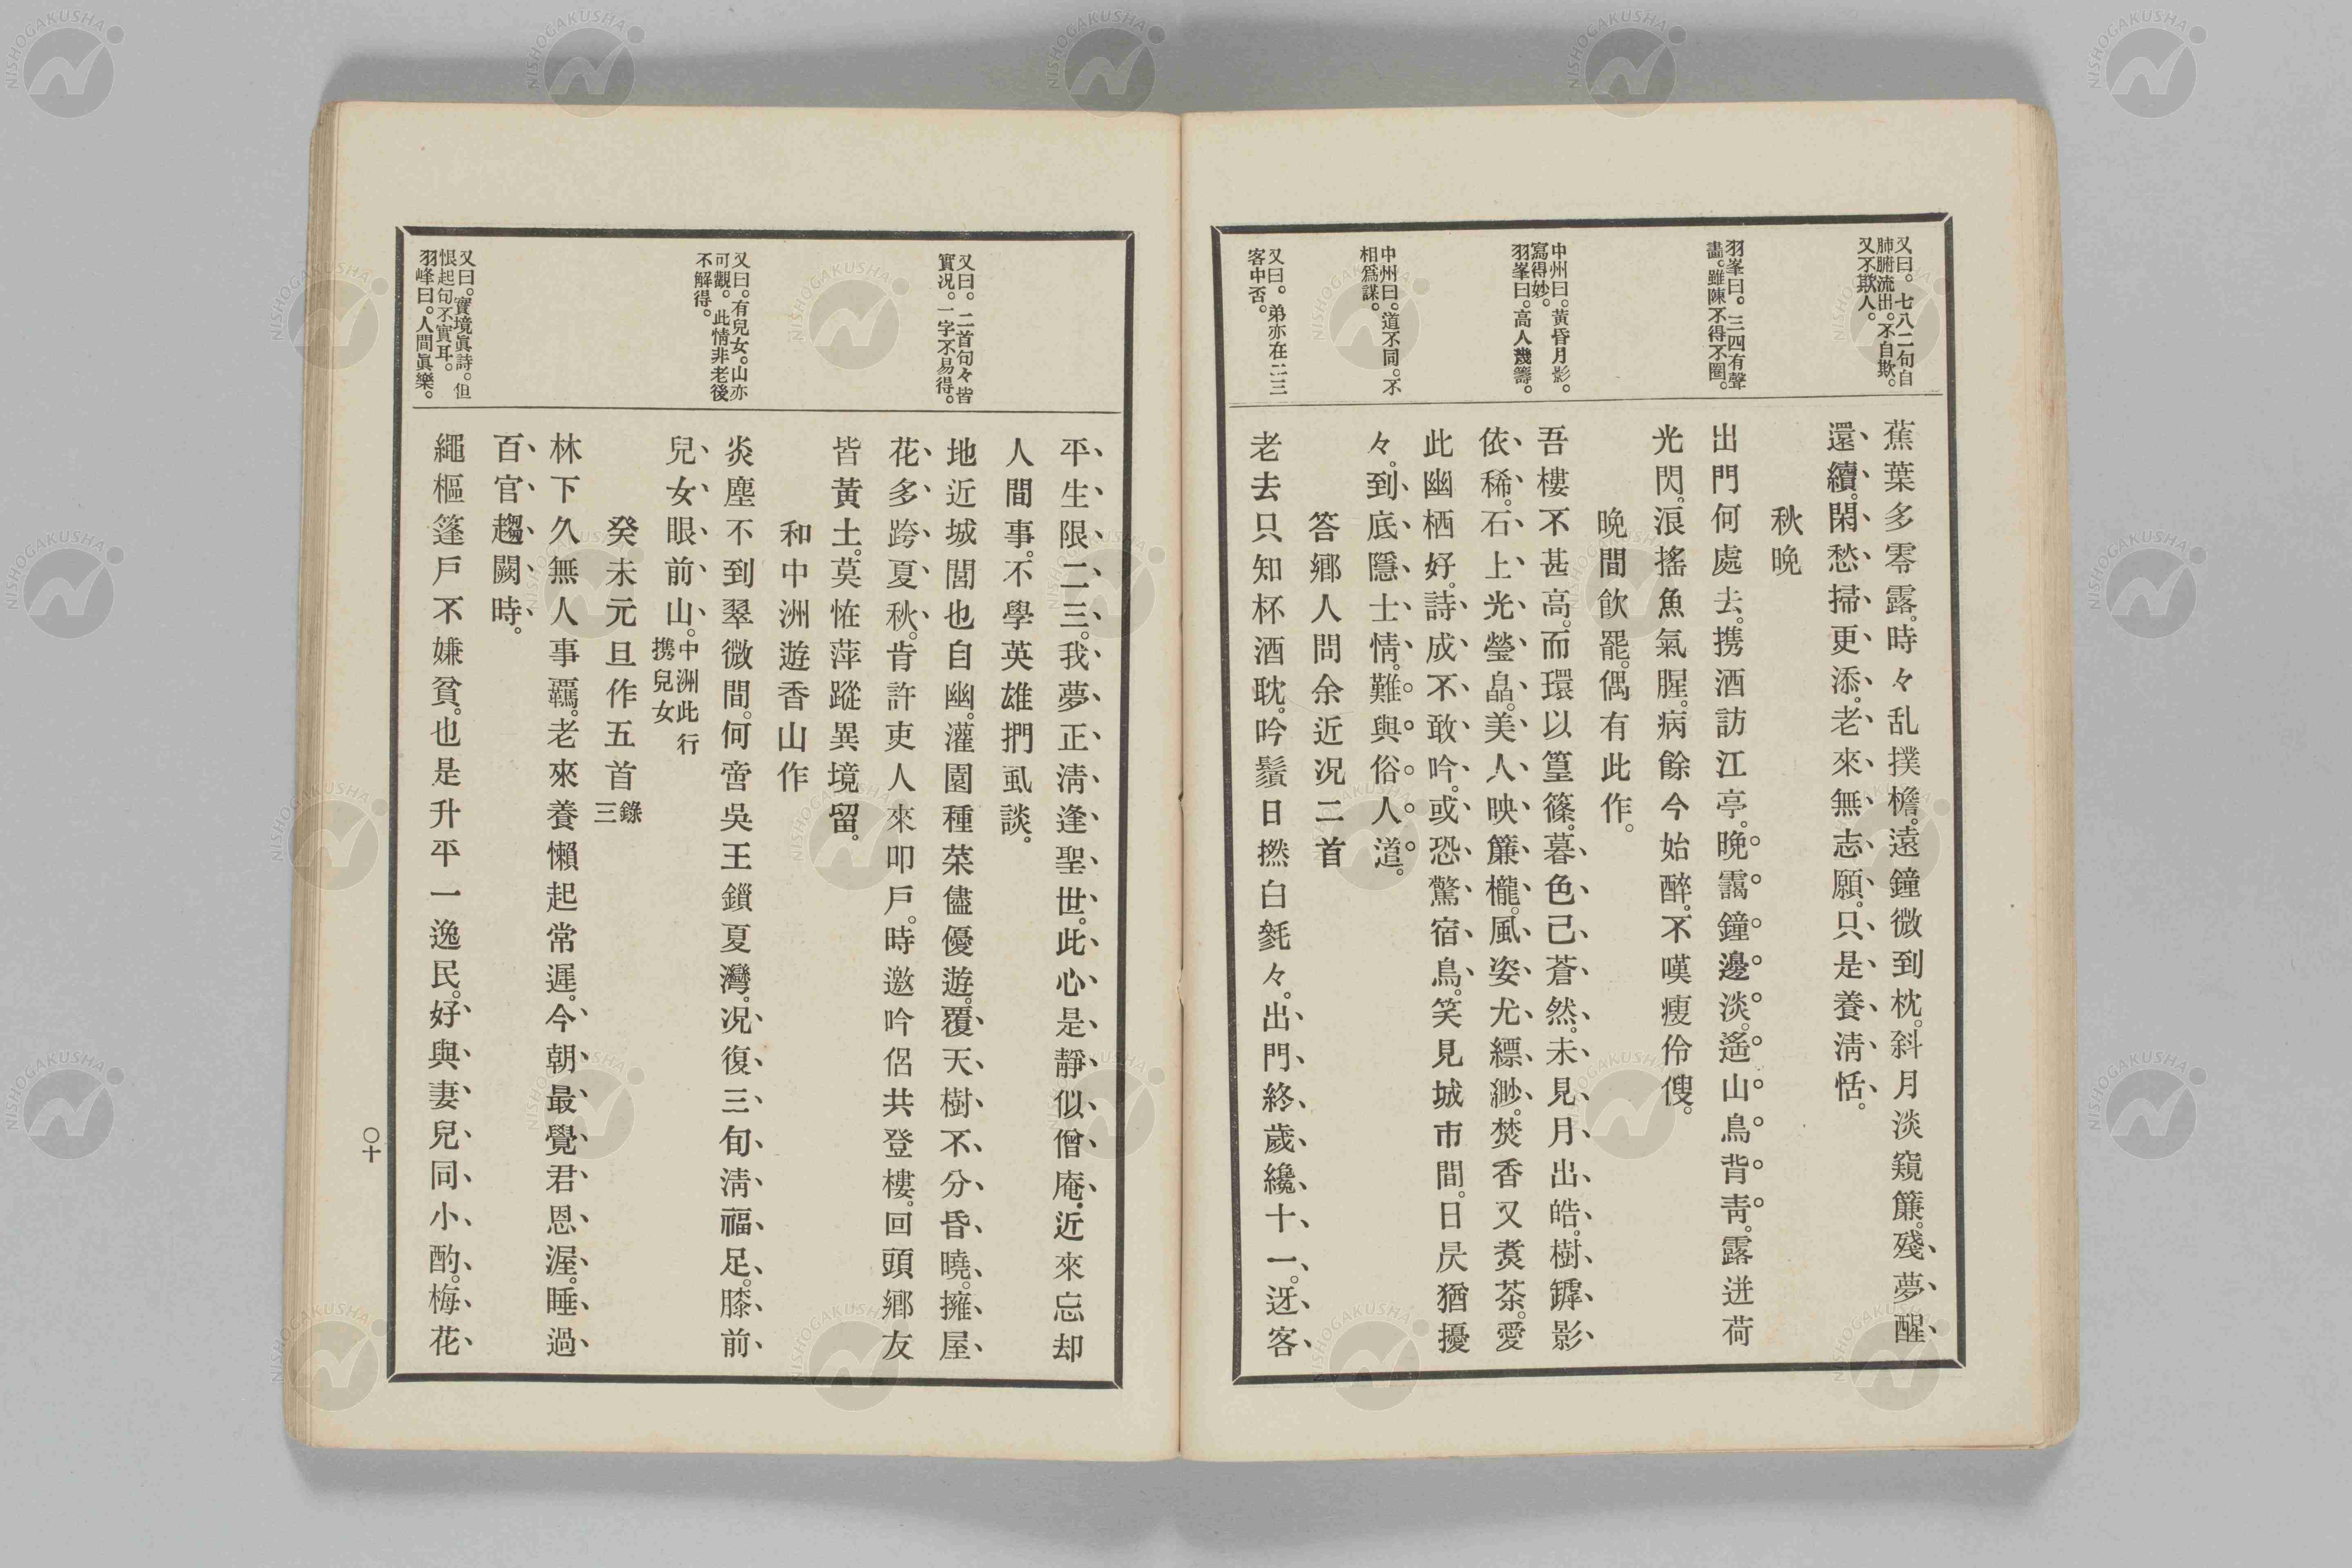 又曰。七八二句自
肺腑流出。不自欺。
又不欺人。
羽峯曰。三四有聲
畵。雖陳不得不圈。
中州曰。黃昏月影。
寫得妙。
羽峯曰。高人幾籌。
中州曰。道不同。不
相爲謀。
又曰。弟亦在二三
客中否。
蕉葉多零露。時々乱撲檐。遠鐘微到枕。斜月淡窺簾。殘夢醒
還續。閑愁掃更添。老來無志願。只是養淸恬。
秋晩
出門何處去。携酒訪江亭。晩靄鐘邊淡。遙山鳥背靑。露迸荷
光閃。浪搖魚氣腥。病餘今始醉。不嘆瘦伶俜。
晩間飮罷。偶有此作。
吾樓不甚高。而環以篁篠。暮色已蒼然。未見月出皓。樹罅影
依稀。石上光瑩皛。美人映簾櫳。風姿尤縹緲。焚香又煑茶。愛
此幽栖好。詩成不敢吟。或恐驚宿鳥。笑見城市間。日昃猶擾
々。到底隱士情。難與俗人道。
答鄕人問余近况二首
老去只知杯酒耽。吟鬚日撚白毿々。出門終歲纔十一。迓客
又曰。二首句々皆
實况。一字不易得。
又曰。有兒女。山亦
可觀。此情非老後
不解得。
又曰。實境眞詩。但
恨起句不實耳。
羽峰曰。人間眞樂。
平生限二三。我夢正淸逢聖世。此心是靜似僧庵。近來忘却
人間事。不學英雄捫虱談。
地近城闉也自幽。灌園種菜儘優遊。覆天樹不分昏曉。擁屋
花多跨夏秋。肯許吏人來叩戶。時邀吟侶共登樓。回頭鄕友
皆黃土。莫恠萍蹤異境留。
和中洲遊香山作
炎塵不到翠微間。何啻吳王鎻夏灣。况復三旬淸福足。膝前
兒女眼前山。中洲此行
携兒女
癸未元旦作五首錄
三
林下久無人事羈。老來養懶起常遲。今朝最覺君恩渥。睡過
百官趨闕時。
繩樞篷戶不嫌貧。也是升平一逸民。好與妻兒同小酌。梅花
〇十